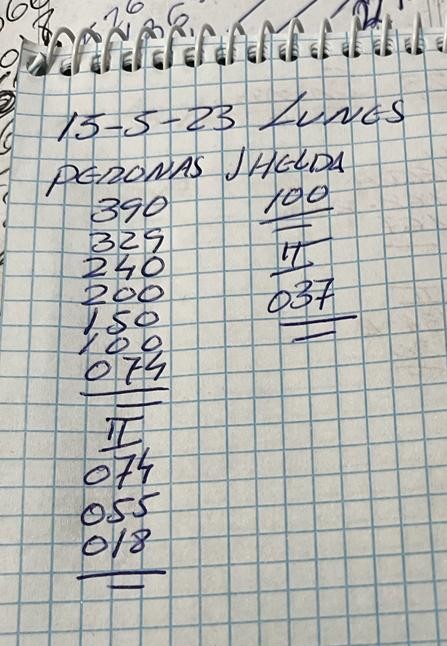 15-5-23 LUNES
PERONAS JHELDA
390 100
329
240 II
200 037
150
100
074
II
074
055
018